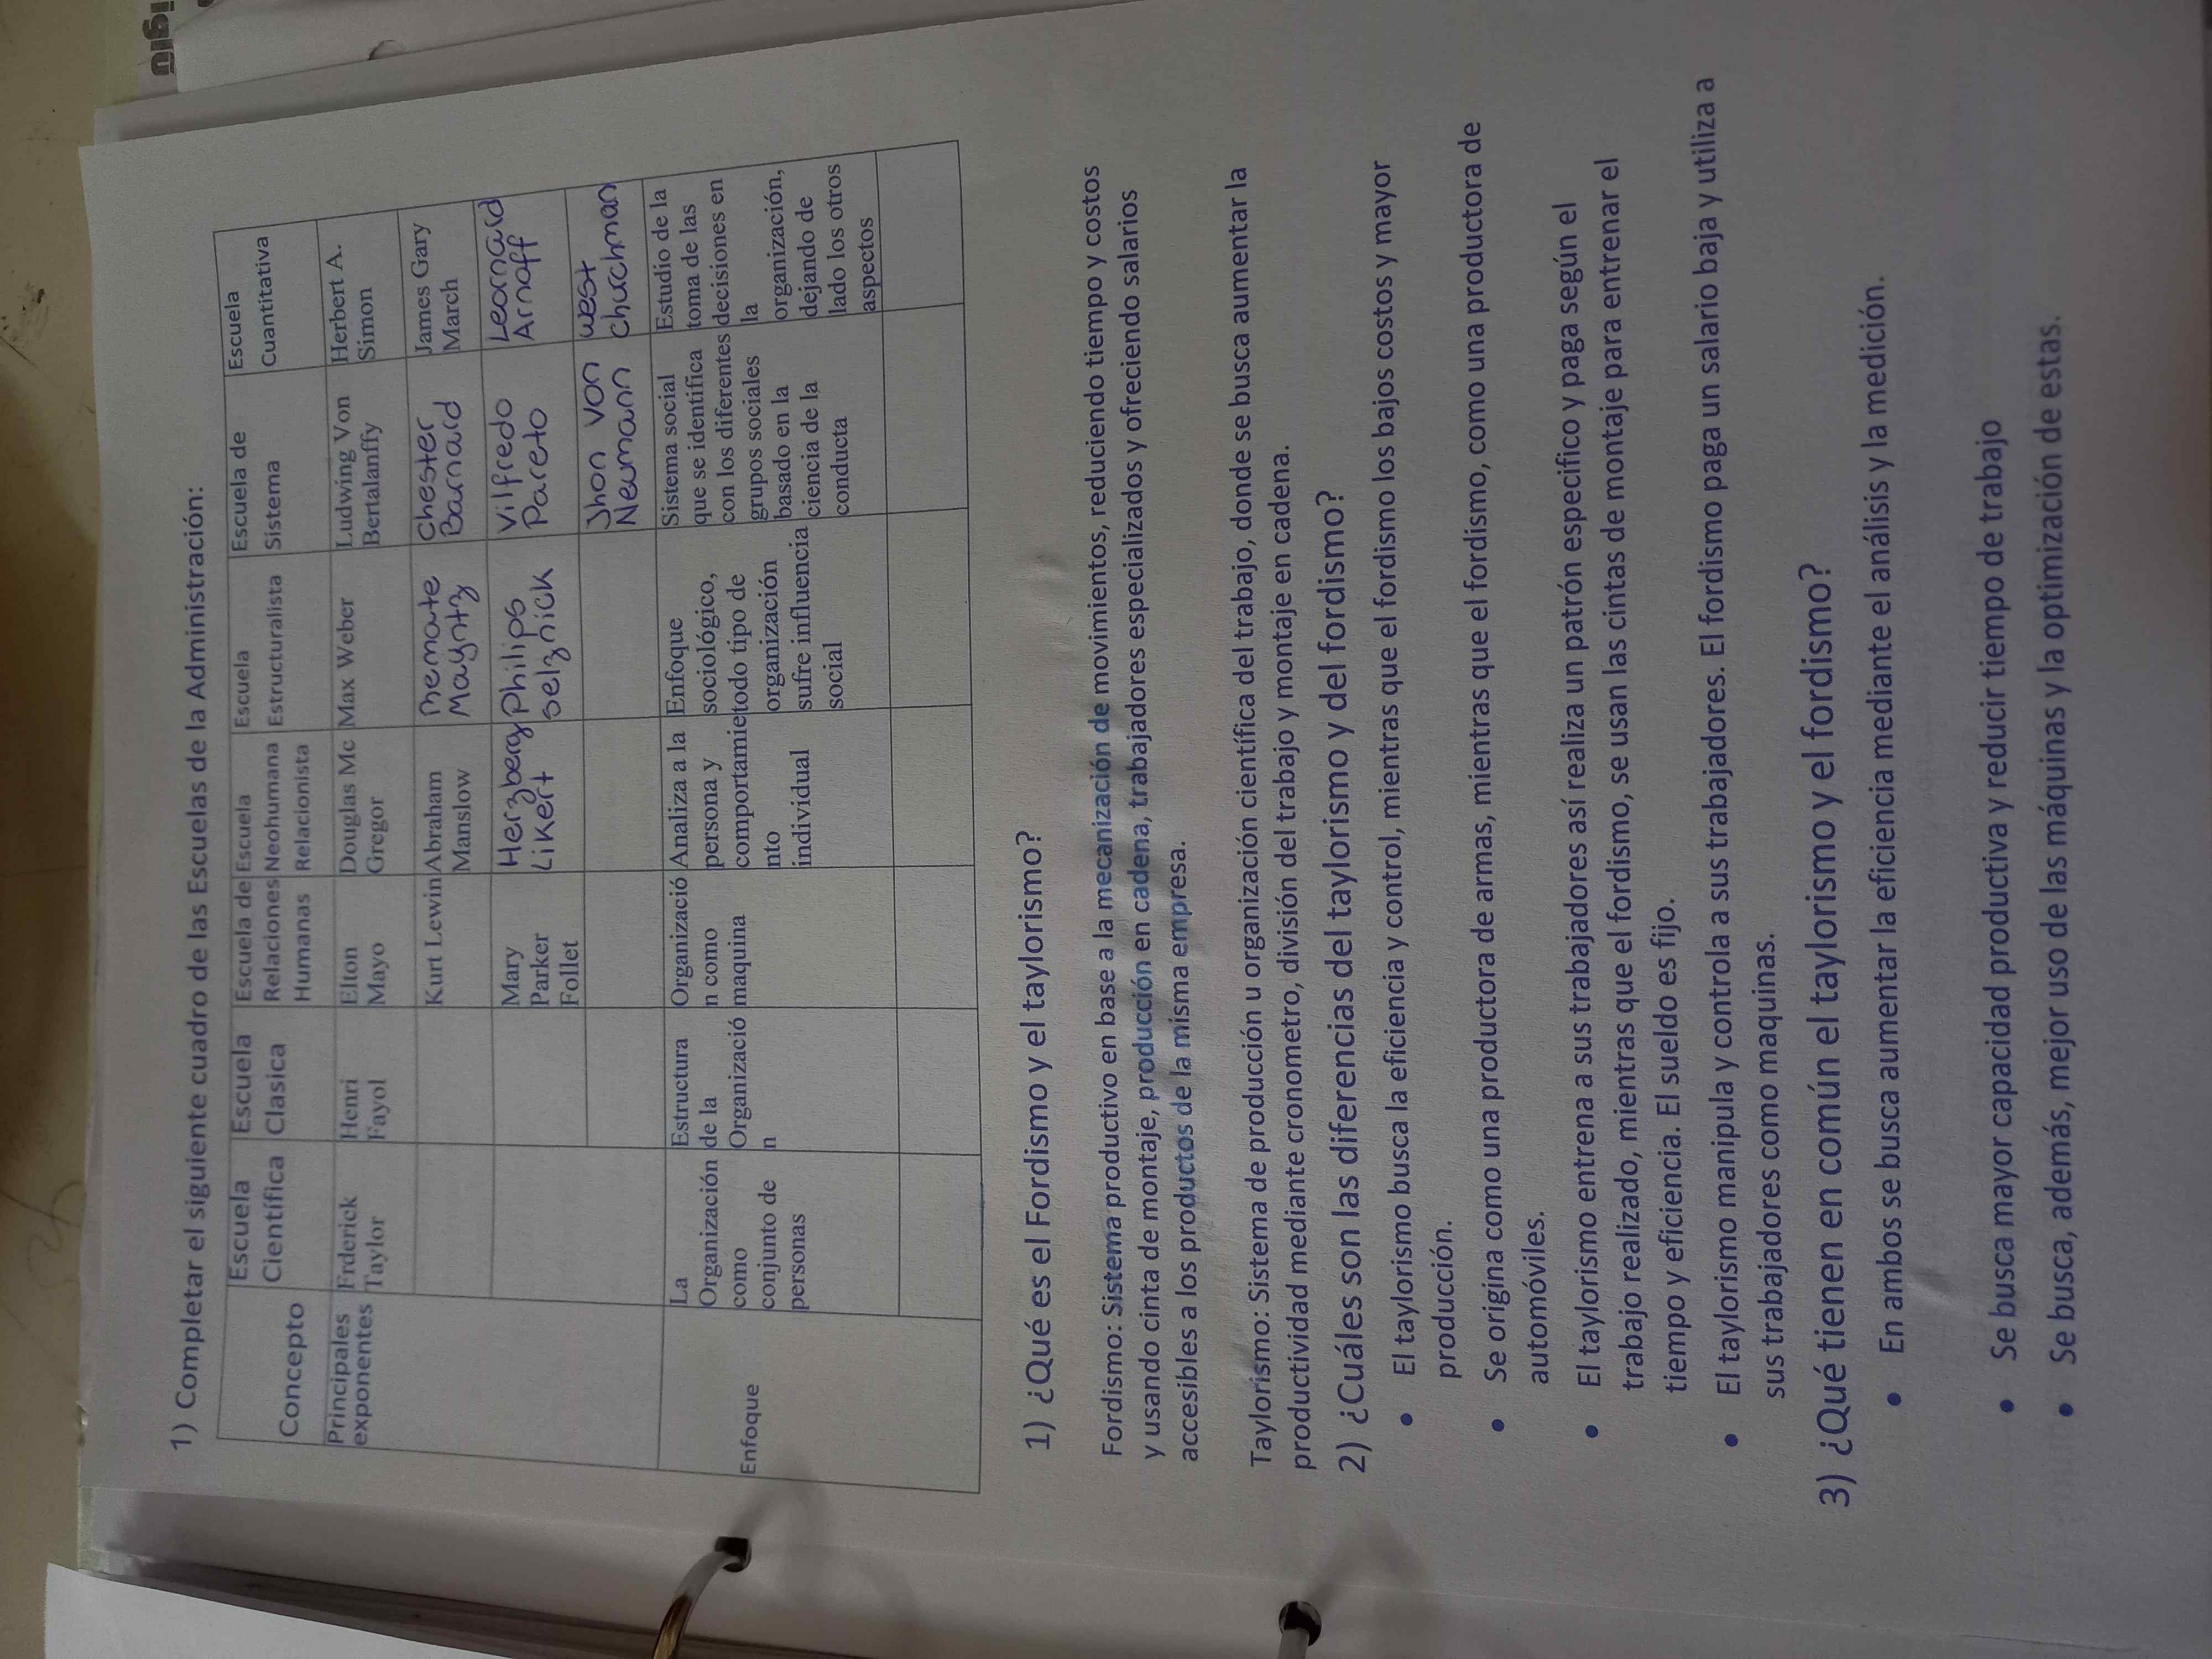 1) Completar el siguiente cuadro de las Escuelas de la Administración:
Concepto
Escuela
Científica
Escuela
Clasica
Escuela de
Relaciones
Humanas
Escuela
Neohumana
Relacionista
Escuela
Estructuralista
Escuela de
Sistema
Escuela
Cuantitativa
Principales
exponentes
Frderick
Taylor
Henri
Fayol
Elton
Mayo
Douglas Mc
Gregor
Max Weber
Ludwing Von
Bertalanffy
Herbert A.
Simon
Kurt Lewin
Abraham
Manslow
Mayntz
Chester
Barnard
James Gary
March
Mary
Parker
Follet
Herzberg
Likert
Philips
selznick
Vilfredo
Pareto
Leornard
Arnoff
Jhon Von
Neumann
west
churchman
Enfoque
La
Organización
como
conjunto de
personas
Estructura
de la
Organizació
n
Organizació
n como
maquina
Analiza a la
persona y
comportamie
nto
individual
Enfoque
sociológico,
todo tipo de
organización
sufre influencia
social
Sistema social
que se identifica
con los diferentes
grupos sociales
basado en la
ciencia de la
conducta
Estudio de la
toma de las
decisiones en
la
organización,
dejando de
lado los otros
aspectos
1) ¿Qué es el Fordismo y el taylorismo?
Fordismo: Sistema productivo en base a la mecanización de movimientos, reduciendo tiempo y costos
y usando cinta de montaje, producción en cadena, trabajadores especializados y ofreciendo salarios
accesibles a los productos de la misma empresa.
Taylorismo: Sistema de producción u organización científica del trabajo, donde se busca aumentar la
productividad mediante cronometro, división del trabajo y montaje en cadena.
2) ¿Cuáles son las diferencias del taylorismo y del fordismo?
• El taylorismo busca la eficiencia y control, mientras que el fordismo los bajos costos y mayor
producción.
• Se origina como una productora de armas, mientras que el fordismo, como una productora de
automóviles.
• El taylorismo entrena a sus trabajadores así realiza un patrón especifico y paga según el
trabajo realizado, mientras que el fordismo, se usan las cintas de montaje para entrenar el
tiempo y eficiencia. El sueldo es fijo.
• El taylorismo manipula y controla a sus trabajadores. El fordismo paga un salario baja y utiliza a
sus trabajadores como maquinas.
3) ¿Qué tienen en común el taylorismo y el fordismo?
• En ambos se busca aumentar la eficiencia mediante el análisis y la medición.
• Se busca mayor capacidad productiva y reducir tiempo de trabajo
• Se busca, además, mejor uso de las máquinas y la optimización de estas.